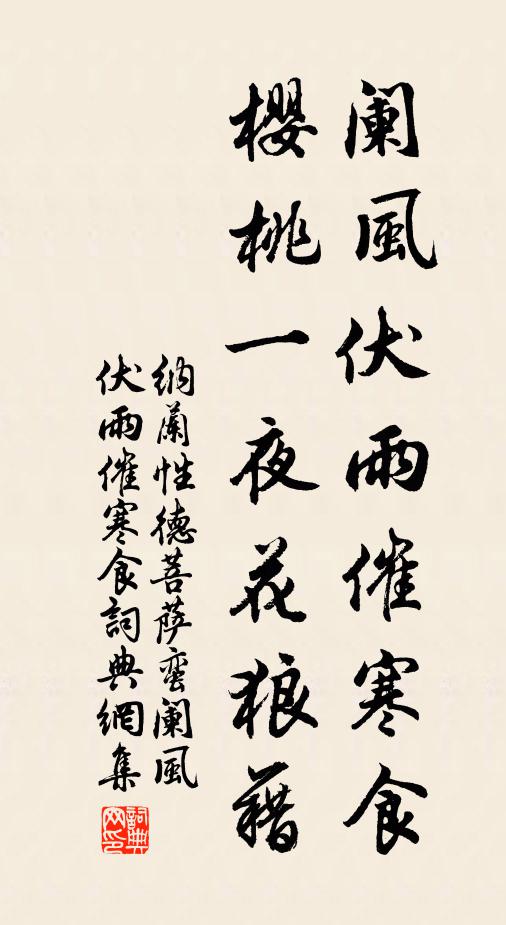 闌風伏雨催寒食
櫻桃一夜花狼藉
納蘭性德菩薩蠻闌風
伏雨催寒食詞典網集
詞典
网印